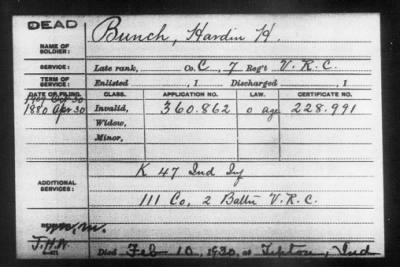 DEAD
NAME OF SOLDIER: Bunch, Hardin H.
SERVICE: Late rank, Co. C, 7 Reg't V.R.C.
TERM OF SERVICE: Enlisted , 1 Discharged , 1
DATE OF FILING. CLASS. APPLICATION NO. LAW. CERTIFICATE NO.
1907 Oct 30
1880 Apr 30 Invalid, 360.862 o age 228.991
Widow,
Minor,
ADDITIONAL SERVICES: K 47 Ind Inf
111 Co, 2 Battn V.R.C.
REMARKS:
J.H.W.
Died Feb 10, 1920, at Tipton, Ind